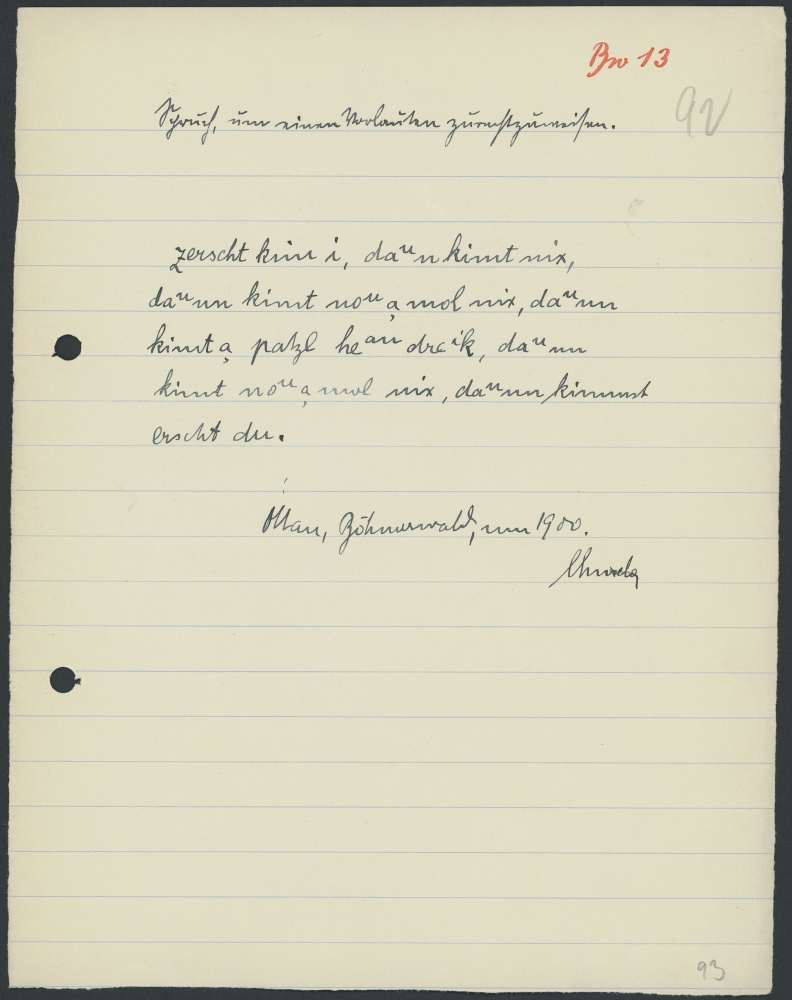 Bw 13
92
Spruch, um einen Vorlauten zurechtzuweisen.
zerscht kim i, daᵘn kimt nix,
daᵘnn kimt noᵘ a̜ mol nix, daᵘnn
kimt a̜ patzl heᵃⁿdreⁱk, daᵘnn
kimt noᵘ a̜ mol nix, daᵘnn kimmst
erscht du.
Ottau, Böhmerwald, um 1900.
93